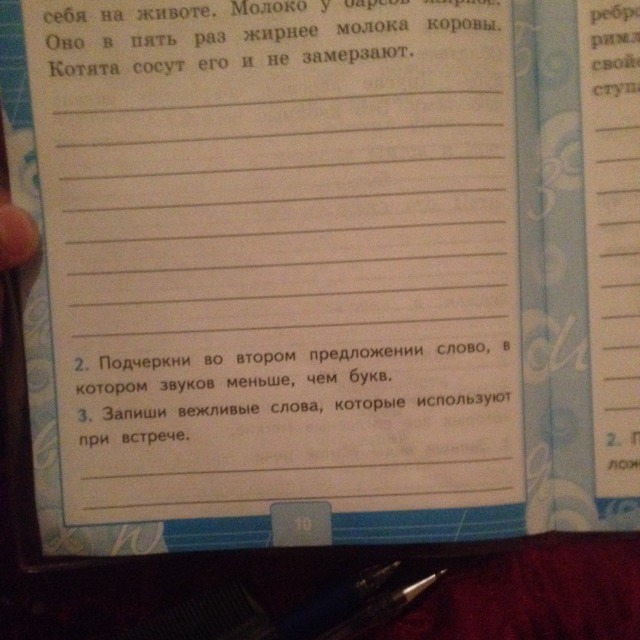 себя на животе. Молоко у барсов жирное.
Оно в пять раз жирнее молока коровы.
Котята сосут его и не замерзают.
2. Подчеркни во втором предложении слово, в
котором звуков меньше, чем букв.
3. Запиши вежливые слова, которые используют
при встрече.
10
ребр
римл
свой
ступ
2. П
лож